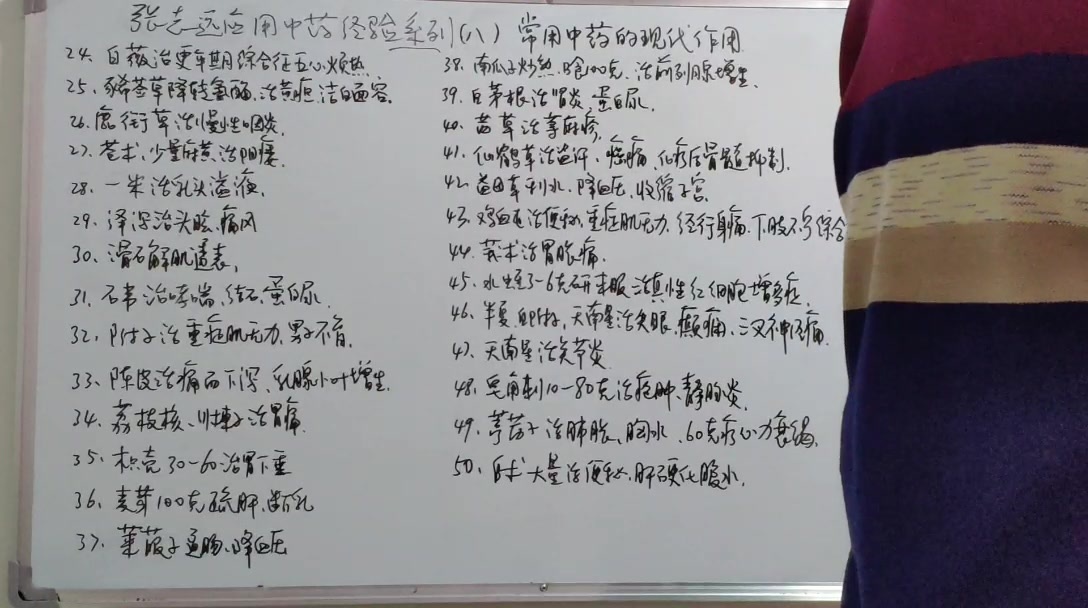 张志远应用中药经验系列(八) 常用中药的现代作用
24. 白薇治更年期综合征五心烦热
25、豨莶草降转氨酶、治黄疸、洁白面容
26、鹿衔草治慢性咽炎
27、苍术、少量麻黄治阳痿
28、治乳头溢液
29、泽泻治头眩、痛风
30、滑石解肌透表
31、石韦治哮喘、结石、蛋白尿
32、附子治重症肌无力、男子不育
33、陈皮治痛而下泻、乳腺小叶增生
34、荔枝核、川楝子治胃痛
35、枳壳30-60治胃下垂
36、麦芽100克疏肝、断乳
37、莱菔子通肠、降血压
38、南瓜子炒熟、日食100克、治前列腺增生
39、白茅根治肾炎、蛋白尿
40、茜草治荨麻疹
41、仙鹤草治盗汗、癌痛、化疗后骨髓抑制
42、益母草利水、降血压、收缩子宫
43、鸡血藤治便秘、重症肌无力、经行身痛、下肢不宁综合
44、莪术治胃脘痛
45、水蛭3-6克研末服治真性红细胞增多症
46、半夏、白附子、天南星治失眠、癫痫、三叉神经痛
47、天南星治关节炎
48、皂角刺10-80克治痈肿、静脉炎
49、葶苈子治肺胀、胸水、60克疗心力衰竭
50、白术大量治便秘、肝硬化腹水